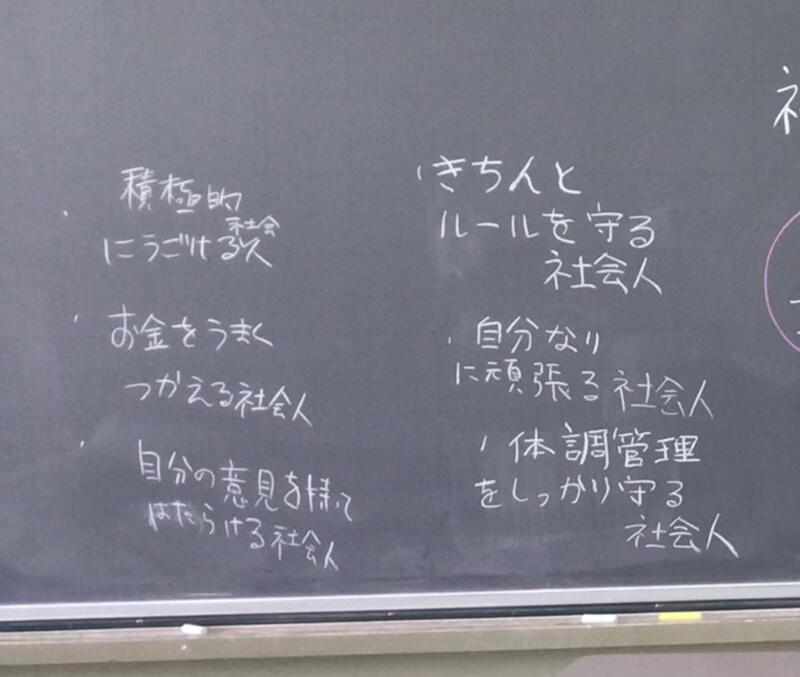 ・積極的
にうごける社会人
・お金をうまく
つかえる社会人
・自分の意見を持って
はたらける社会人
・きちんと
ルールを守る
社会人
・自分なり
に頑張る社会人
・体調管理
をしっかり守る
社会人